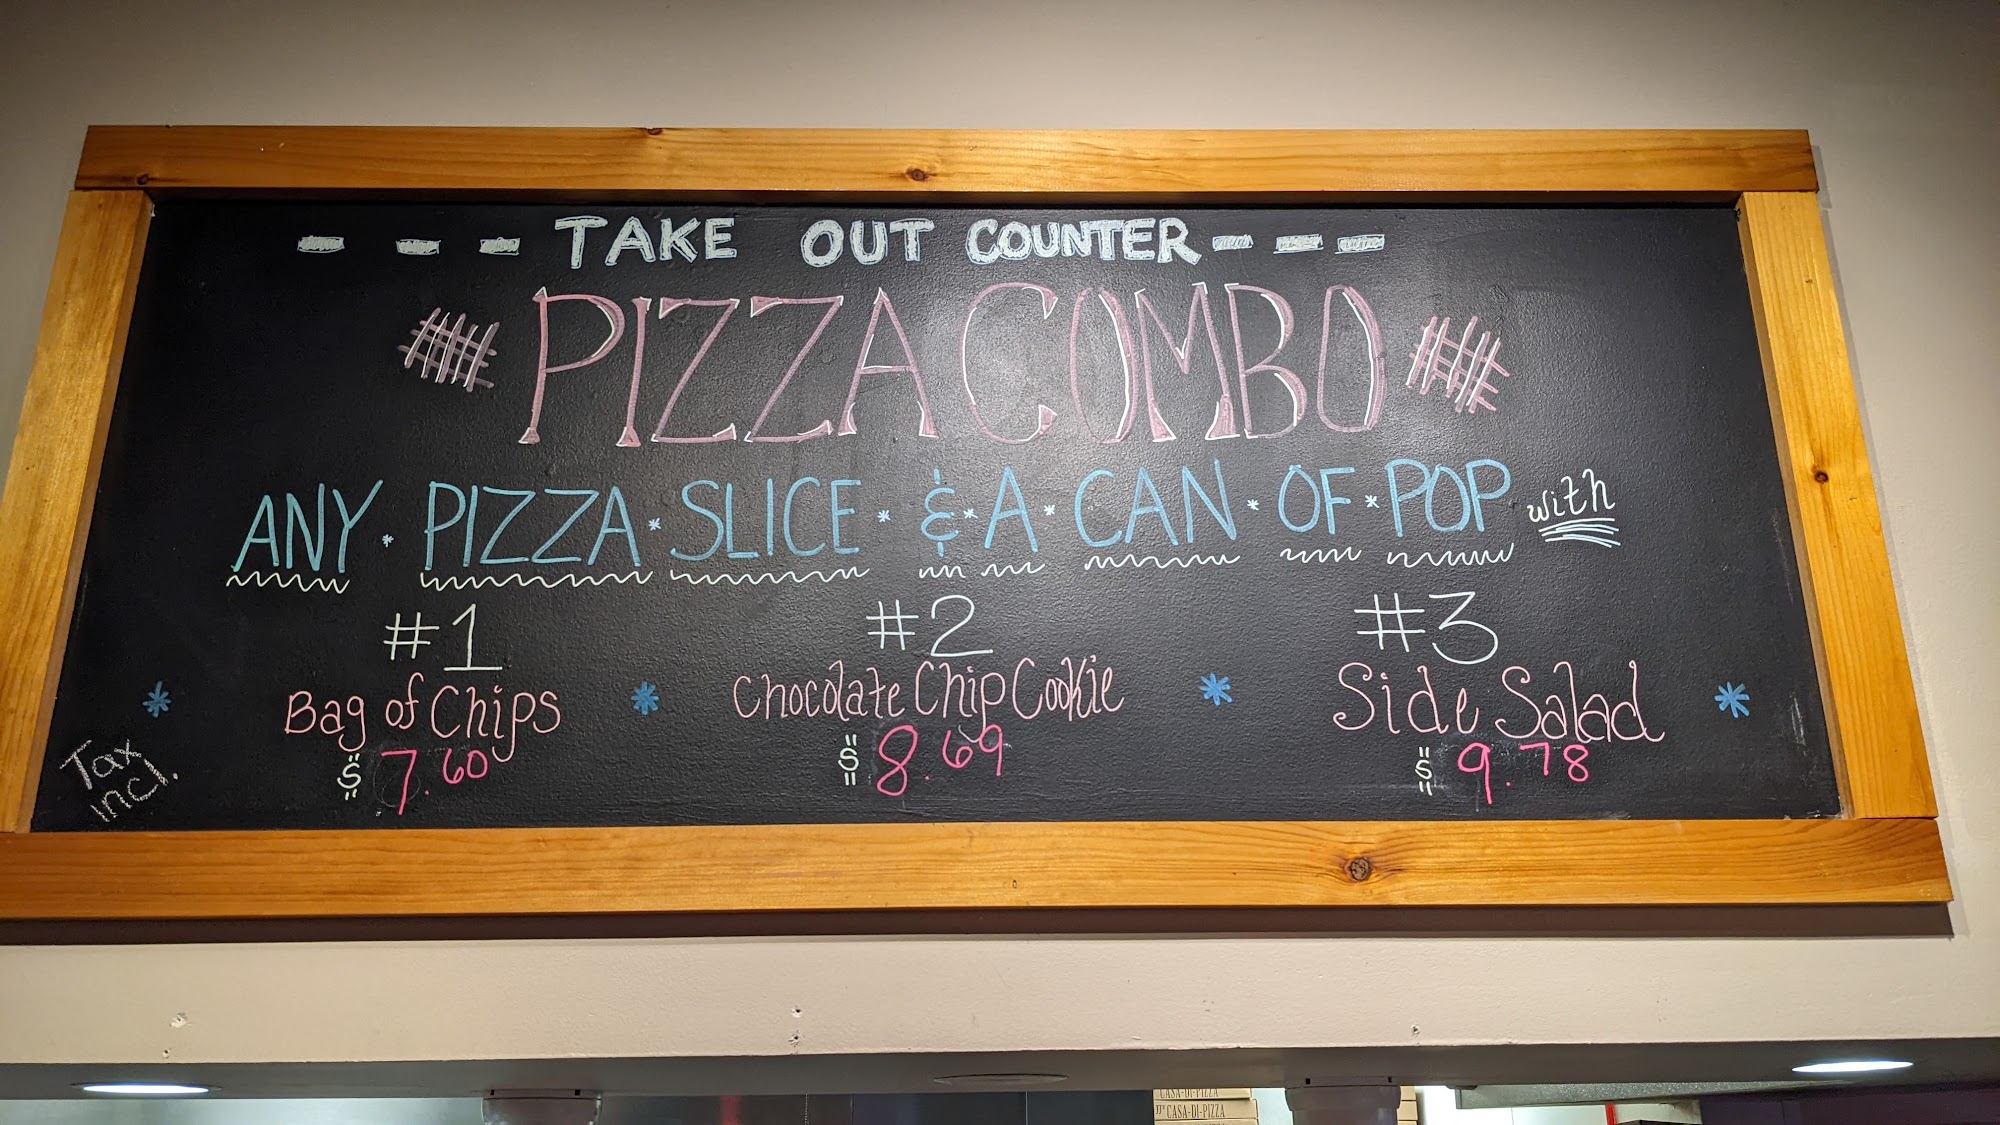 --- TAKE OUT COUNTER ---
PIZZA COMBO
ANY * PIZZA * SLICE * & * A * CAN * OF * POP with
#1
Bag of Chips
$7.60
#2
Chocolate Chip Cookie
$8.69
#3
Side Salad
$9.78
Tax
incl.
CASA-DI-PIZZA
CASA-DI-PIZZA